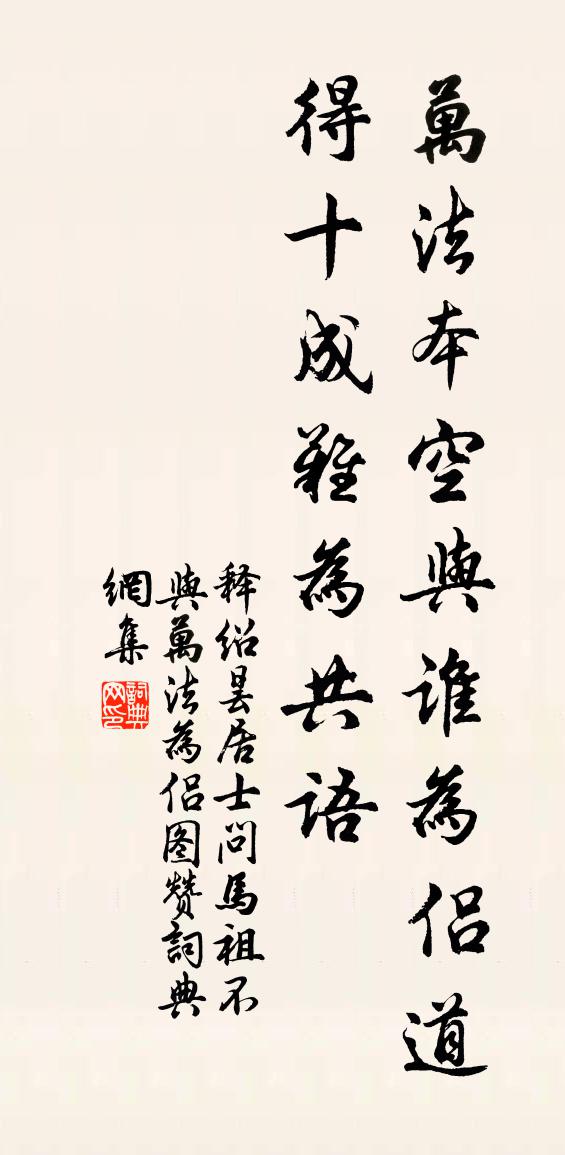 萬法本空與誰為侶道
得十成難為共語
释绍昙居士問馬祖不
與萬法為侶图赞詞典
網集
詞典
网印